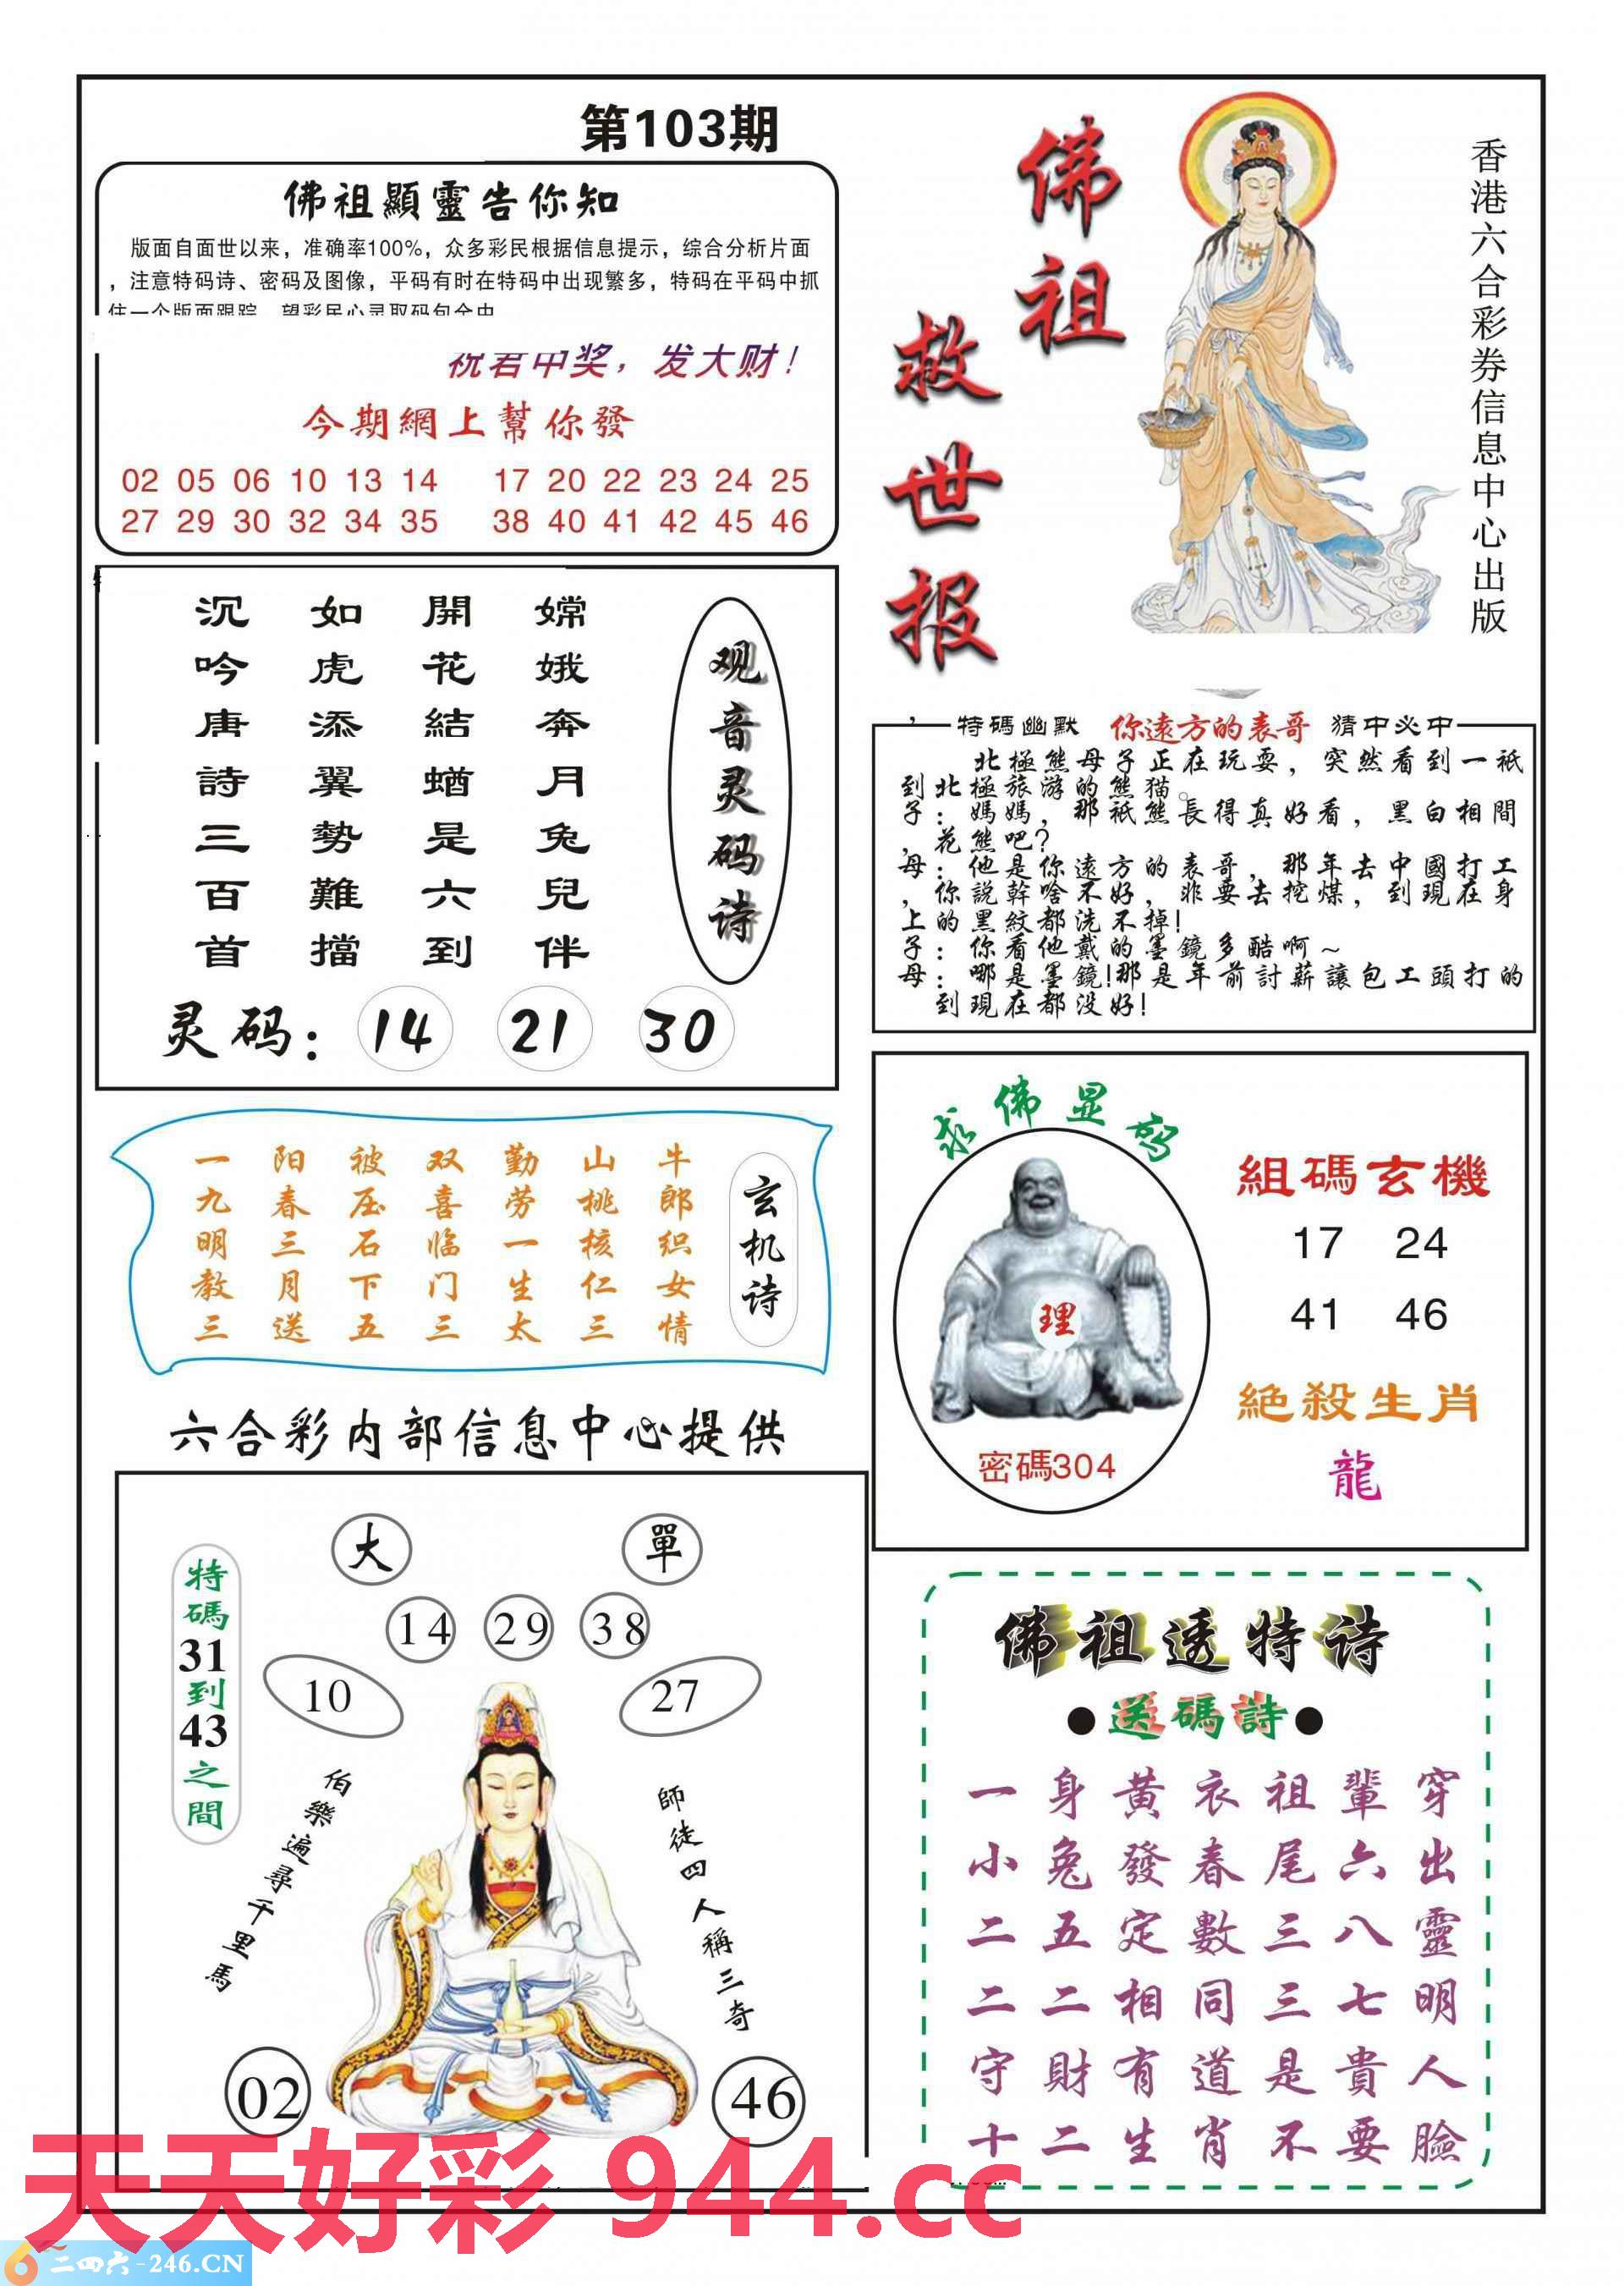 第103期
佛祖顯靈告你知
版面自面世以来，准确率100%，众多彩民根据信息提示，综合分析片面
，注意特码诗、密码及图像，平码有时在特码中出现繁多，特码在平码中抓
住一个版面跟踪，望彩民心灵取码包全中
祝君中奖，发大财！
今期網上幫你發
02 05 06 10 13 14 17 20 22 23 24 25
27 29 30 32 34 35 38 40 41 42 45 46
佛祖
救世报
香港六合彩券信息中心出版
观音灵码诗
嫦娥奔月兔兒伴
開花結蝤是六到
如虎添翼勢難擋
沉吟唐詩三百首
灵码：14 21 30
特碼幽默 你遠方的表哥 猜中必中
北極熊母子正在玩耍，突然看到一祇
到北極旅游的熊猫。
子：媽媽，那祇熊長得真好看，黑白相間
，花熊吧？
母：他是你遠方的表哥，那年去中國打工
，你説幹啥不好，非要去挖煤，到現在身
上的黑紋都洗不掉！
子：你看他戴的墨鏡多酷啊～
母：哪是墨鏡！那是年前討薪讓包工頭打的
到現在都没好！
玄机诗
牛郎织女情
山桃核仁三
勤劳一生太
双喜临门三
被压石下五
阳春三月送
一九明教三
六合彩内部信息中心提供
求佛显码
理
密碼304
組碼玄機
17 24
41 46
絶殺生肖
龍
大
單
特碼31到43之間
14 29 38
10
27
伯樂遍尋千里馬
師徒四人稱三奇
02
46
佛祖透特诗
●送碼詩●
一身黄衣祖輩穿
小兔發春尾六出
二五定數三八靈
二二相同三七明
守財有道是貴人
十二生肖不要臉
天天好彩 944.cc
二四六-246.CN